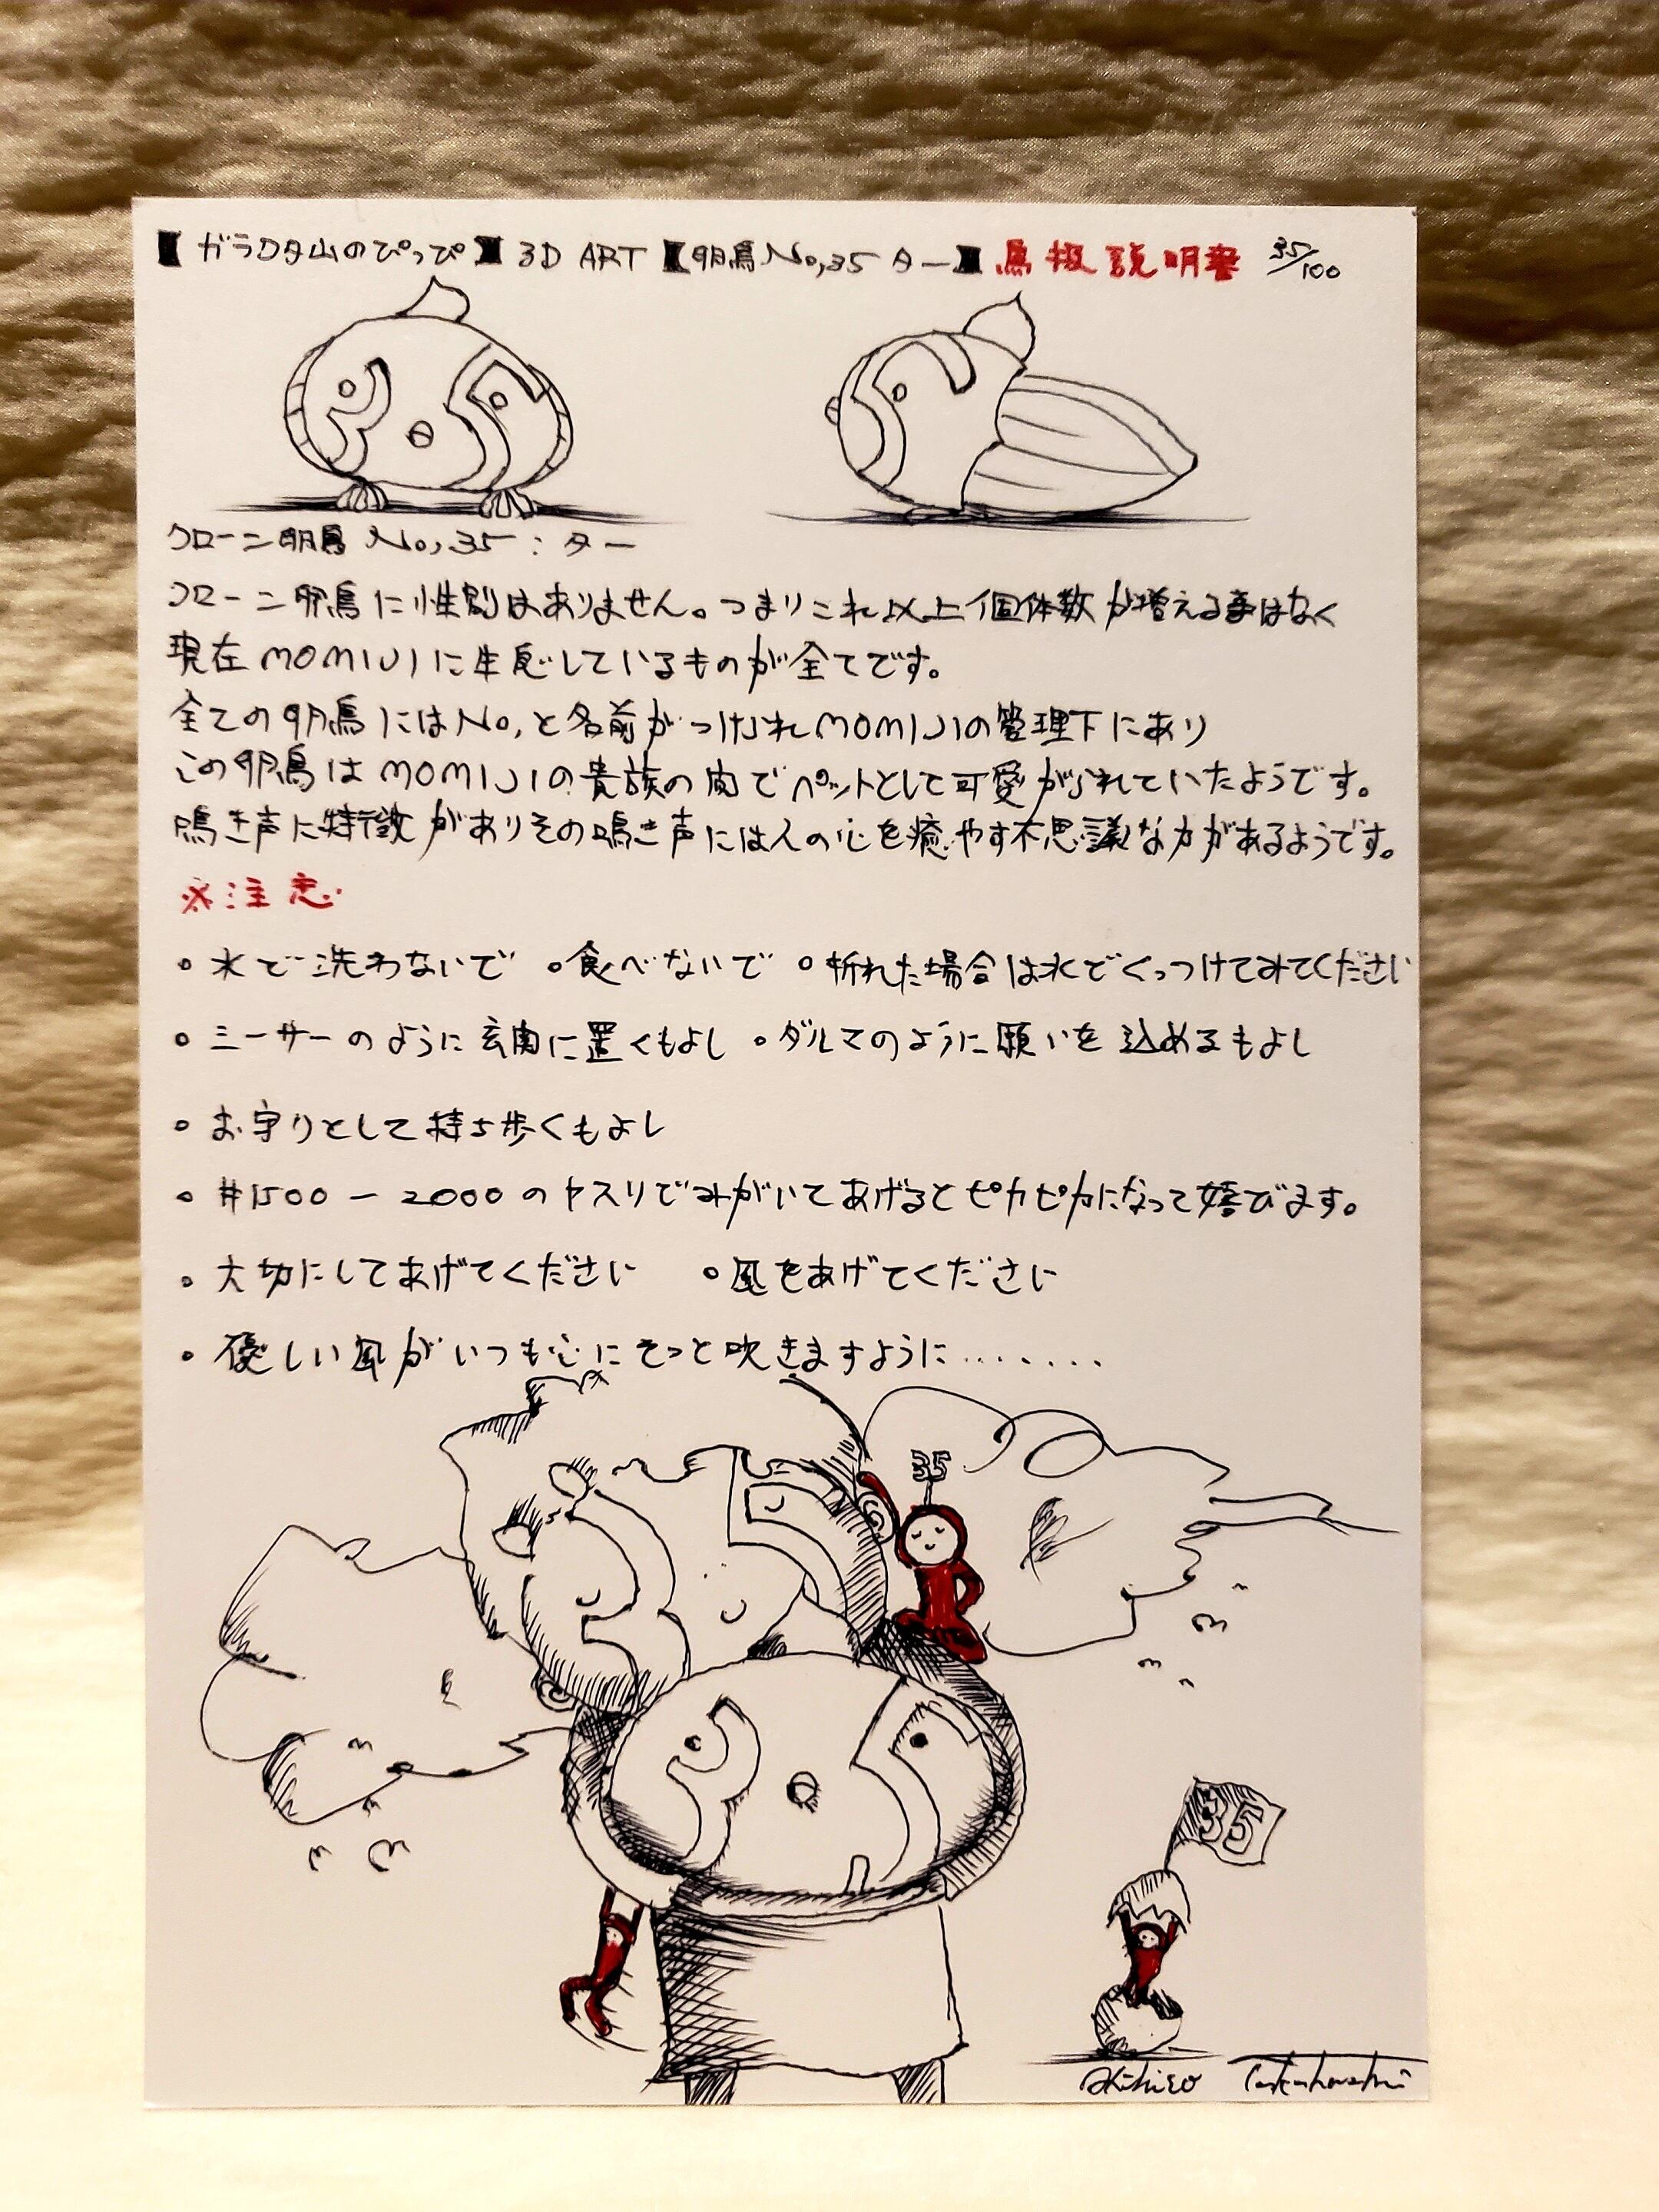 【ガラクタ山のぴっぴ】3D ART【卵鳥No,35 ター】鳥扱説明書 35/100
クローン卵鳥 No,35：ター
クローン卵鳥に性別はありません。つまりこれ以上個体数が増える事はなく
現在MOMIJIに生息しているものが全てです。
全ての卵鳥にはNo,と名前がつけられMOMIJIの管理下にあり
この卵鳥はMOMIJIの貴族の間でペットとして可愛がられていたようです。
鳴き声に特徴がありその鳴き声には人の心を癒やす不思議な力があるようです。
※注意
・水で洗わないで ・食べないで ・折れた場合は水でくっつけてみてください
・シーサーのように玄関に置くもよし ・ダルマのように願いを込めるもよし
・お守りとして持ち歩くもよし
・#1500ー2000のヤスリでみがいてあげるとピカピカになって喜びます。
・大切にしてあげてください ・風をあげてください
・優しい風がいつも心にそっと吹きますように........
35
35
Akihiro